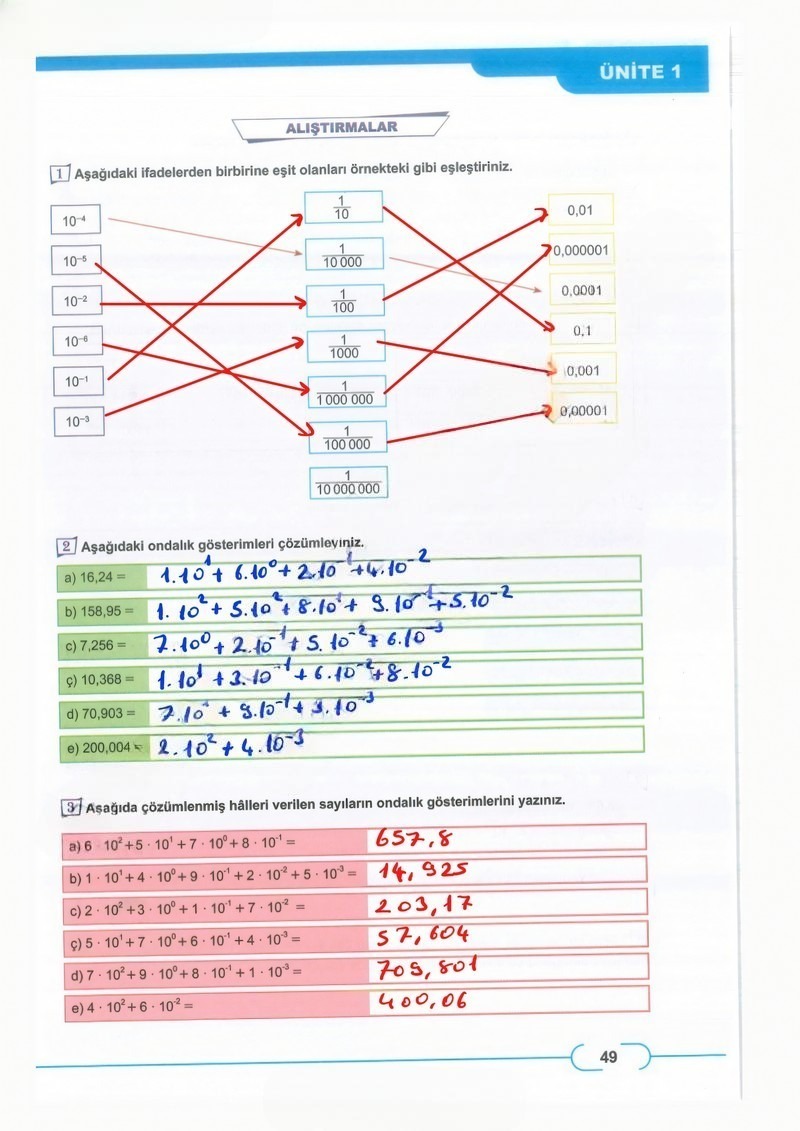 ÜNİTE 1
ALIŞTIRMALAR
1 Aşağıdaki ifadelerden birbirine eşit olanları örnekteki gibi eşleştiriniz.
10⁻⁴ 1/10 0,01
10⁻⁵ 1/10 000 0,000001
10⁻² 1/100 0,0001
10⁻⁶ 1/1000 0,1
10⁻¹ 1/1 000 000 0,001
10⁻³ 1/100 000 0,00001
1/10 000 000
2 Aşağıdaki ondalık gösterimleri çözümleyiniz.
a) 16,24 = 1.10¹ + 6.10⁰ + 2.10⁻¹ + 4.10⁻²
b) 158,95 = 1.10² + 5.10² + 8.10¹ + 9.10⁻¹ + 5.10⁻²
c) 7,256 = 7.10⁰ + 2.10⁻¹ + 5.10⁻² + 6.10⁻³
ç) 10,368 = 1.10¹ + 3.10⁻¹ + 6.10⁻² + 8.10⁻²
d) 70,903 = 7.10¹ + 9.10⁻¹ + 3.10⁻³
e) 200,004 = 2.10² + 4.10⁻³
3 Aşağıda çözümlenmiş hâlleri verilen sayıların ondalık gösterimlerini yazınız.
a) 6 10² + 5 · 10¹ + 7 · 10⁰ + 8 · 10⁻¹ = 657,8
b) 1 · 10¹ + 4 · 10⁰ + 9 · 10⁻¹ + 2 · 10⁻² + 5 · 10⁻³ = 14,925
c) 2 · 10² + 3 · 10⁰ + 1 · 10⁻¹ + 7 · 10⁻² = 203,17
ç) 5 · 10¹ + 7 · 10⁰ + 6 · 10⁻¹ + 4 · 10⁻³ = 57,604
d) 7 · 10² + 9 · 10⁰ + 8 · 10⁻¹ + 1 · 10⁻³ = 709,801
e) 4 · 10² + 6 · 10⁻² = 400,06
49